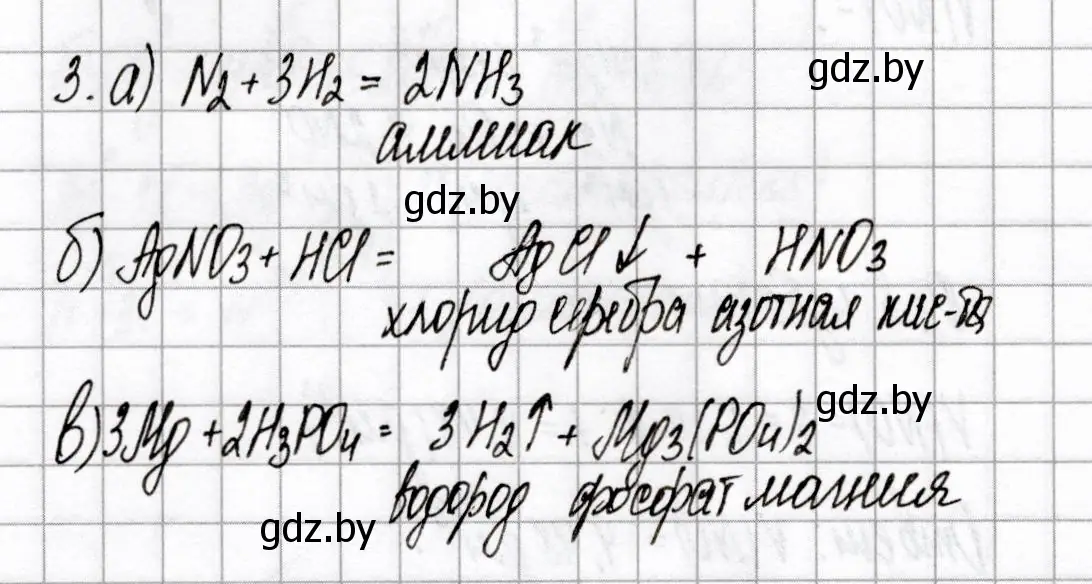 3. а) N₂ + 3H₂ = 2NH₃
gdz.by
аммиак
gdz.by
б) AgNO₃ + HCl = AgCl↓ + HNO₃
хлорид серебра азотная кис-та
gdz.by
в) 3Mg + 2H₃PO₄ = 3H₂↑ + Mg₃(PO₄)₂
водород фосфат магния
gdz.by